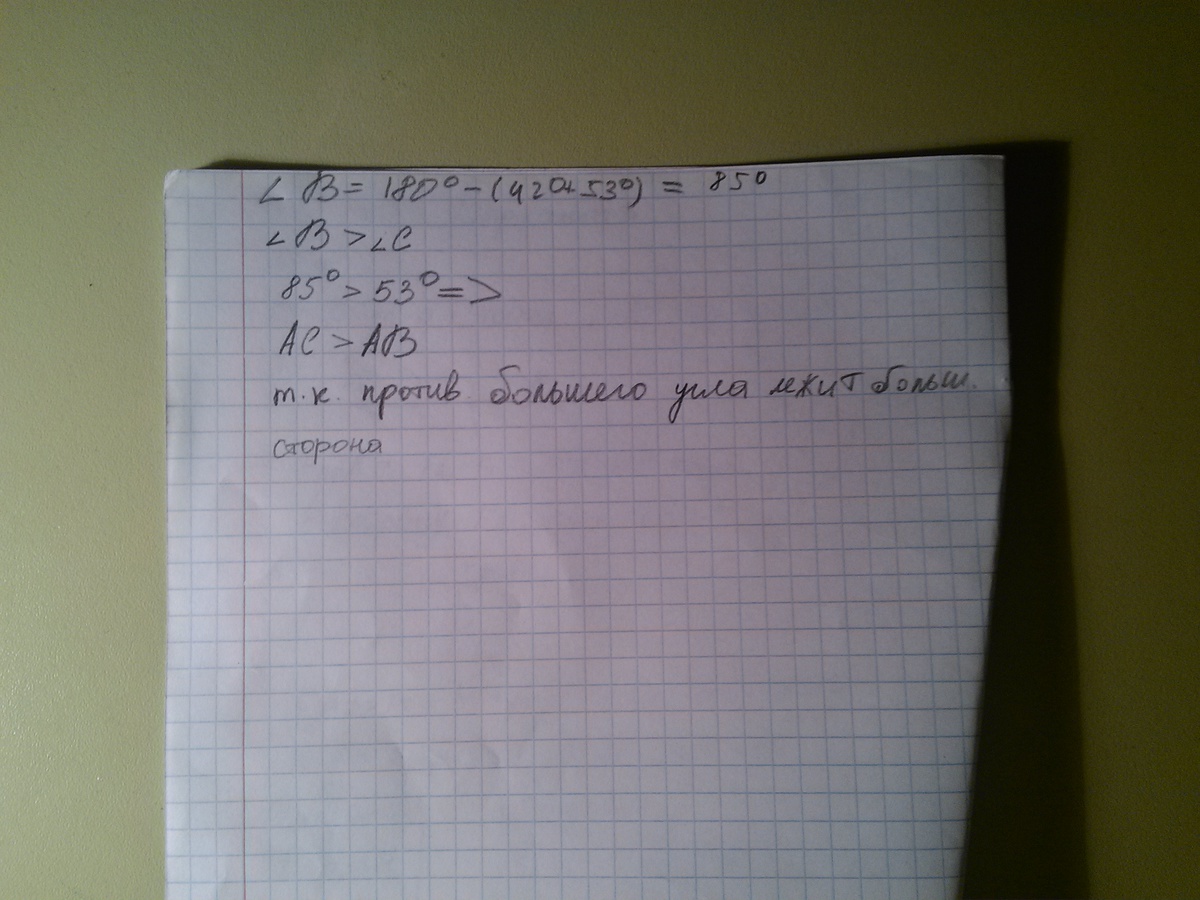 ∠B = 180° - (42°+53°) = 85°
∠B > ∠C
85° > 53° =>
AC > AB
т.к. против большего угла лежит больш.
сторона